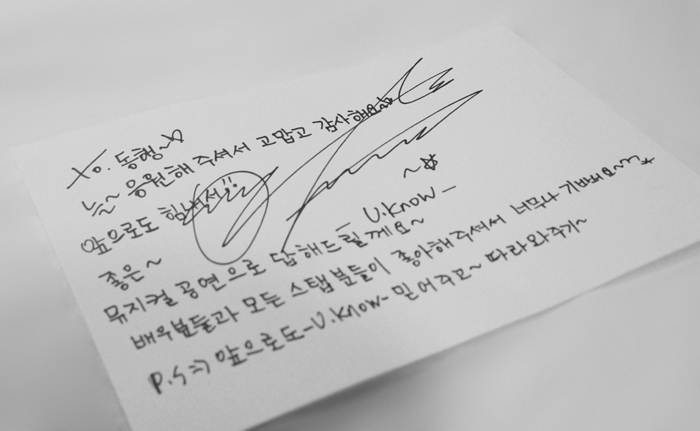 to. 동행~♡
늘~ 응원해 주셔서 고맙고 감사해요~☆
앞으로도 힘내서!! ~☆
좋은~ - U.Know -
뮤지컬 공연으로 답해드릴게요~
배우분들과 모든 스탭분들이 좋아해주셔서 너무나 기뻐요~^^*
P.S =) 앞으로도 -U.Know- 믿어주고~ 따라와주기~